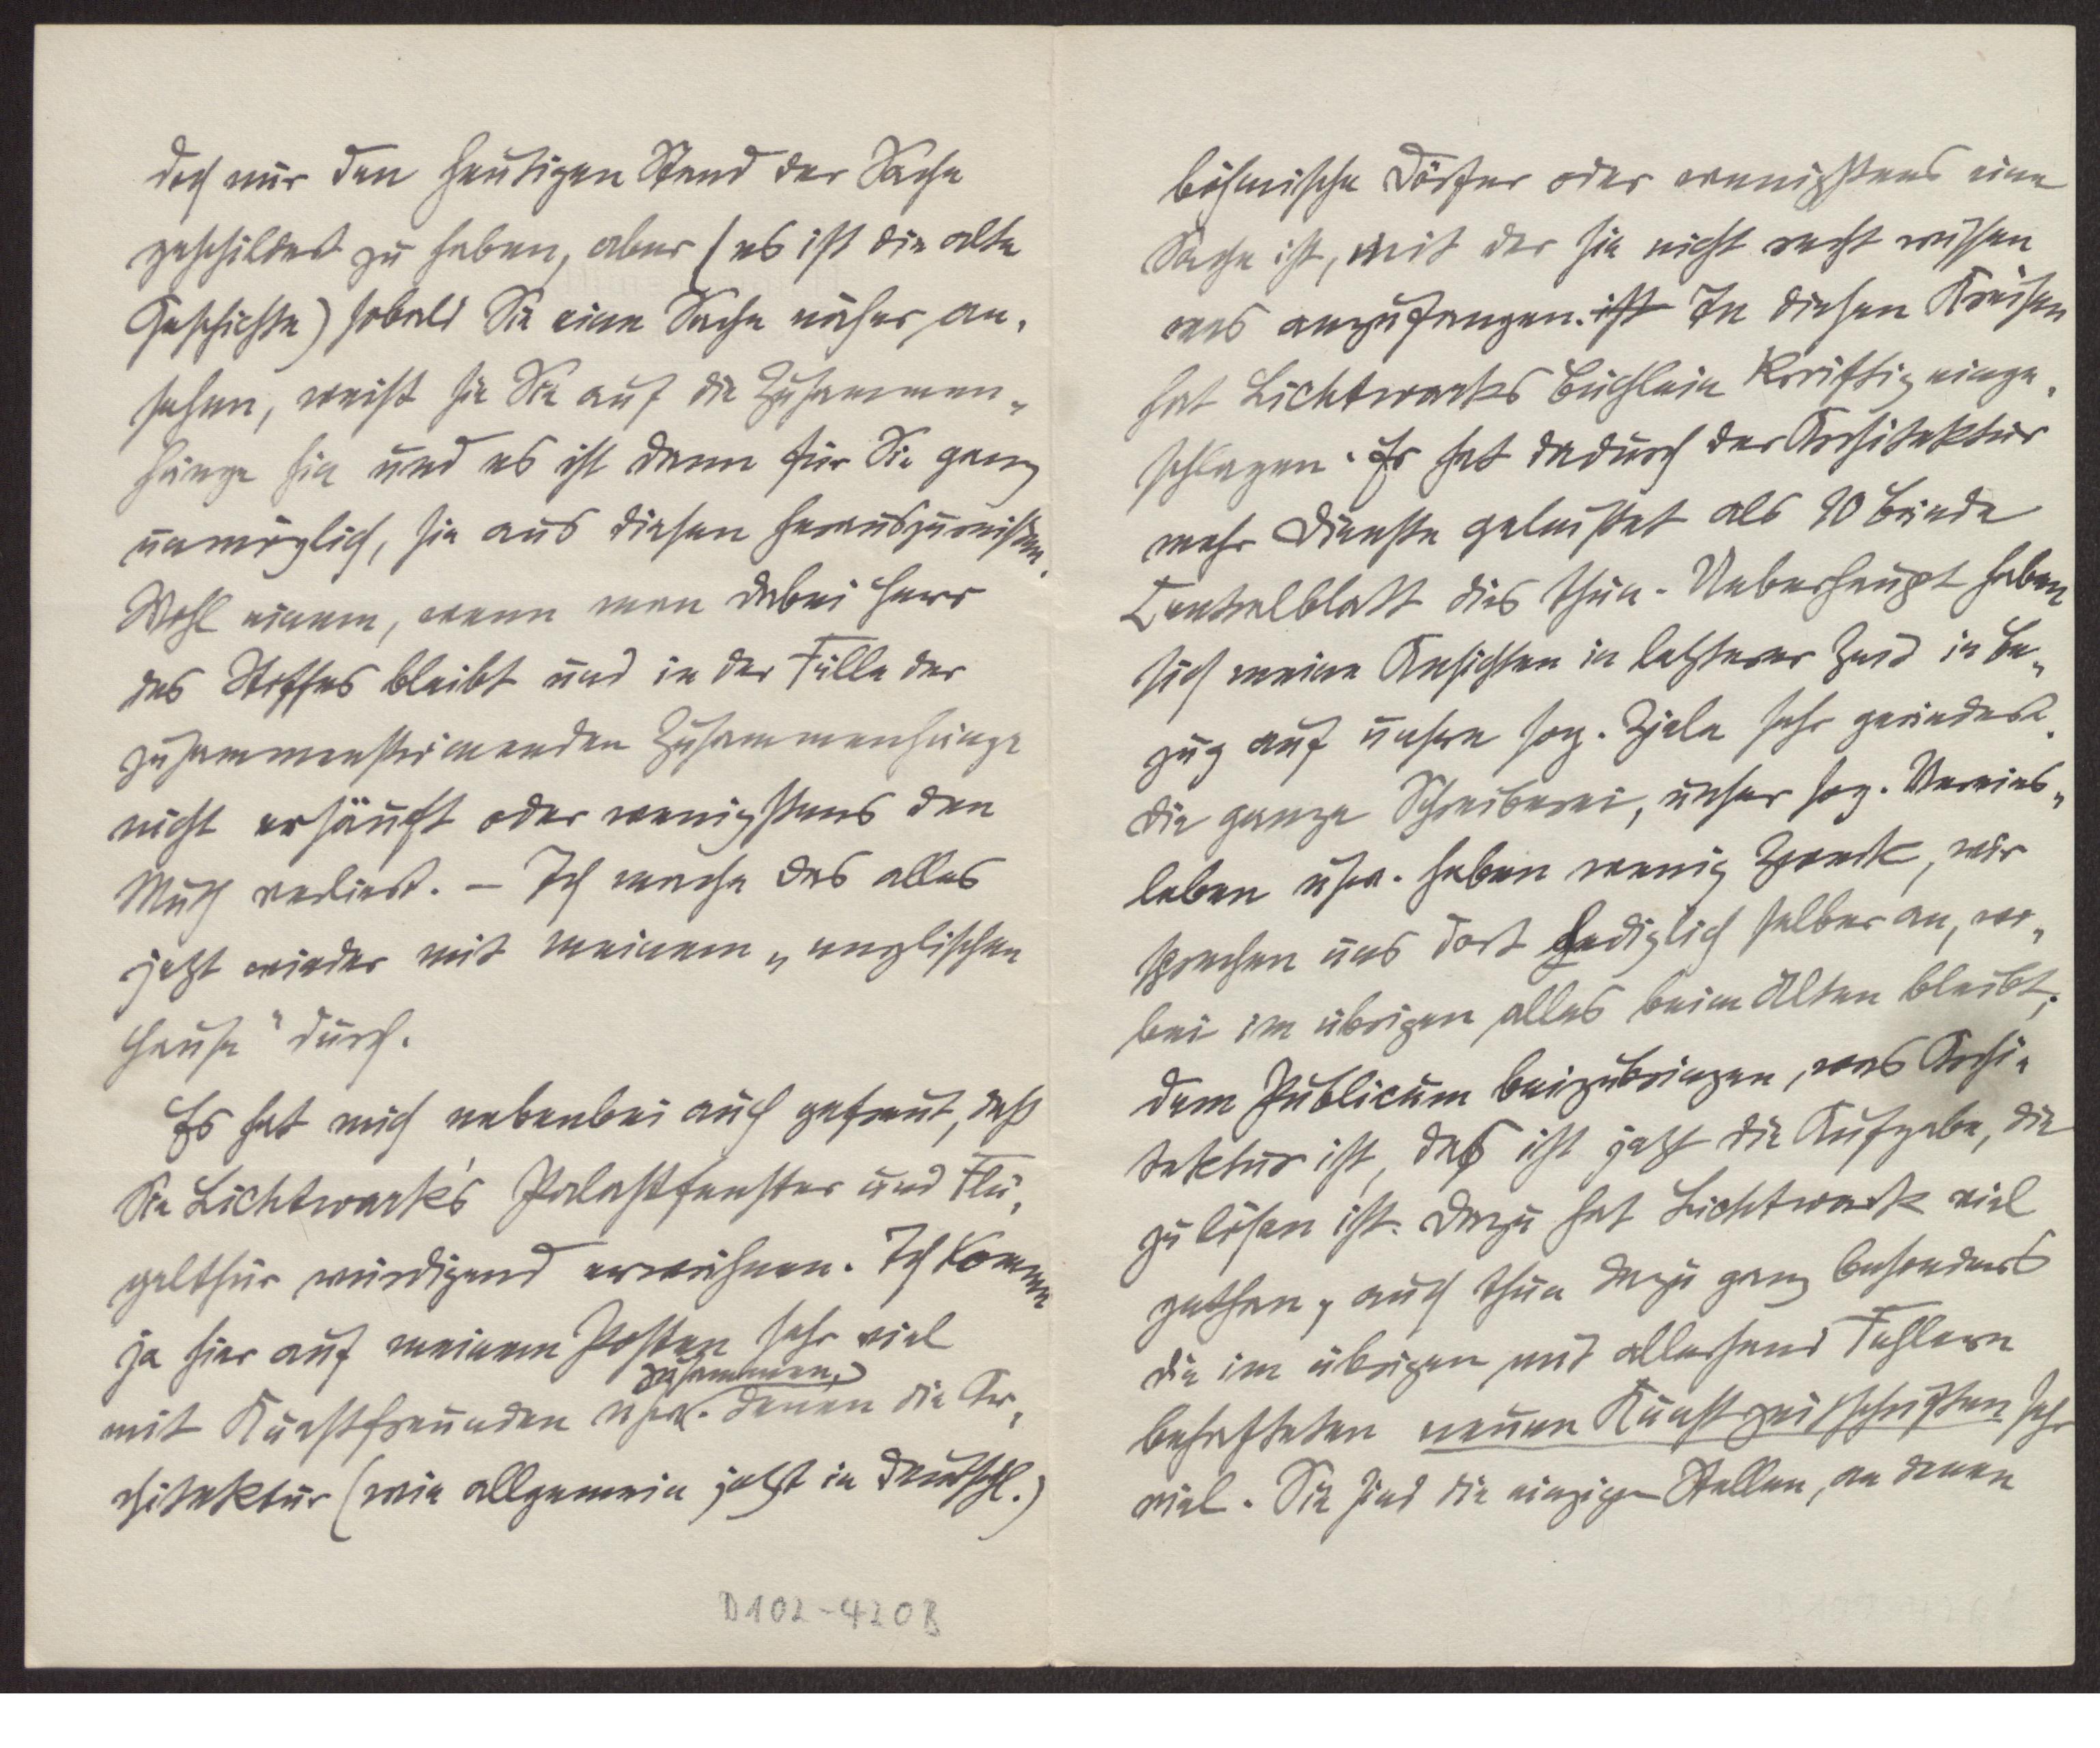 doch nur den heutigen Stand der Sache
geschildert zu haben, aber (es ist die alte
Geschichte) sobald Sie eine Sache näher an-
sehen, weist sie Sie auf die Zusammen-
hänge hin und es ist dann für Sie ganz
unmöglich, sie aus diesen herauszureißen.
Wohl einem, wenn man dabei Herr
des Stoffes bleibt und in der Fülle der
zusammenströmenden Zusammenhänge
nicht ersäuft oder wenigstens den
Muth verliert. – Ich mache das alles
jetzt wieder mit meinem „englischen
Hause" durch.
Es hat mich nebenbei auch gefreut, daß
Sie Lichtwark's Palastfenster und Flü-
gelthür würdigend erwähnen. Ich komme
ja hier auf meinem Posten sehr viel
zusammen,
mit Kunstfreunden usw. denen die Ar-
chitektur (wie allgemein jetzt in Deutschl.)
D102-420B
böhmische Dörfer oder wenigstens eine
Sache ist, mit der sie nicht recht wissen
was anzufangen. ist In diesen Kreisen
hat Lichtwarks Büchlein kräftig einge-
schlagen. Er hat dadurch der Architektur
mehr Dienste geleistet als 20 Bände
Centralblatt dies thun. Ueberhaupt haben
sich meine Ansichten in letzterer Zeit in Be-
zug auf unsere sog. Ziele sehr geändert.
Die ganze Schreiberei, unser sog. Vereins-
leben usw. haben wenig Zweck, wir
sprechen uns dort lediglich selber an, wo-
bei im übrigen alles beim Alten bleibt;
dem Publicum beizubringen, was Archi-
tektur ist, das ist jetzt die Aufgabe, die
zu lösen ist. Dazu hat Lichtwark viel
gethan, auch thun dazu ganz besonders
die im übrigen mit allerhand Fehlern
behafteten neuen Kunstzeitschriften sehr
viel. Sie sind die einzigen Stellen, an denen